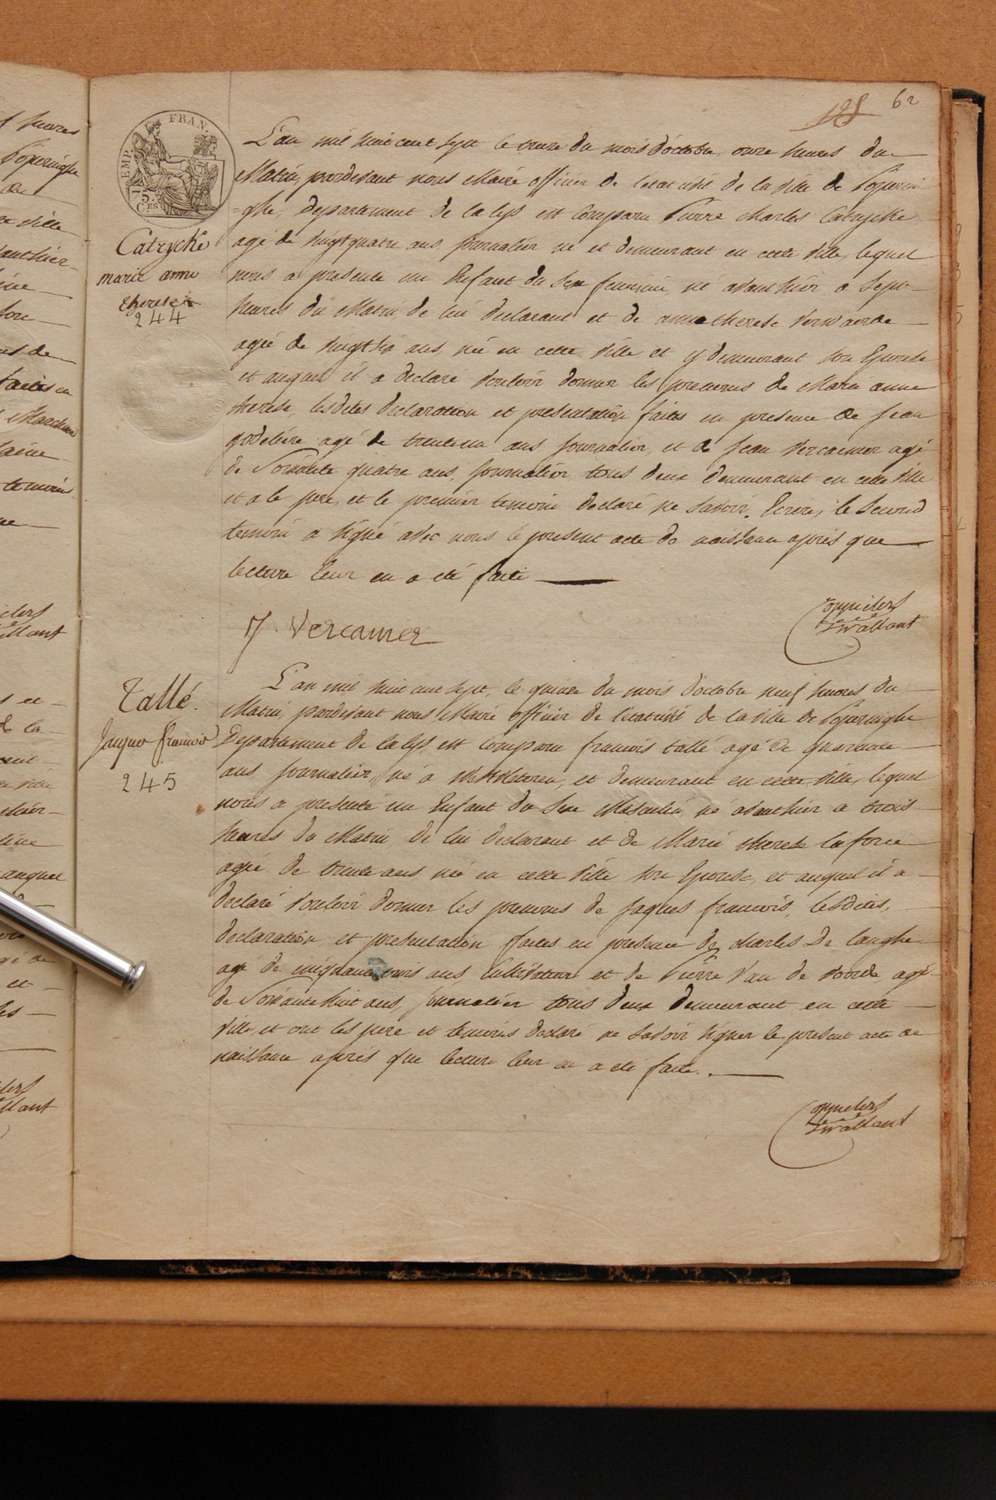 128 62
EMP. FRAN.
75 Ces
L'an mil huit cent sept le treize du mois d'octobre onze heures du
Matin, pardevant nous Maire officier de l'etat civil de la ville de Poperin
=ghe, departement de la lys est comparu Pierre Charles Catryche
agé de vingt quatre ans journalier né et demeurant en cette ville, lequel
nous a présenté un Enfant du sexe feminin, né avant hier a sept
heures du Matin de lui declarant et de anne therese
agée de vingt six ans née en cette ville et y demeurant son Epouse
et auquel il a declaré vouloir donner les prenoms de Marie anne
therese, lesdites declaration et présentation faites en presence de Jean
agé de trente un ans journalier, et de Jean Vercaemer agé
de Soixante quatre ans, journalier tous deux demeurant en cette ville
et a le pere, et le premier temoin declaré ne savoir Ecrire, le second
temoin a signé avec nous le present acte de naissance après que
lecture leur en a été faite
Catryche
marie anne
therese
244
J. Vercamer
Tallé.
Jaques francois
245
L'an mil huit cent sept, le quinze du mois d'octobre neuf heures du
Matin pardevant nous Maire officier de l'etat civil de la ville de Poperinghe
Departement de la lys est comparu francois tallé agé de quarante
ans journalier, né a et demeurant en cette ville, lequel
nous a presenté un Enfant du Sexe Masculin, né avant hier a trois
heures du Matin de lui declarant et de Marie therese la force
agée de trente ans née en cette ville son Epouse, et auquel il a
declaré vouloir donner les prenoms de Jaques francois, lesdites,
declaration et presentation faites en presence de charles De langhe
agé de ans, Cultivateur et de Pierre Van de Voorde agé
de Soixante huit ans, journalier tous deux demeurant en cette
ville et ont les pere et temoins declaré ne savoir signer le present acte de
naissance après que lecture leur en a été faite.